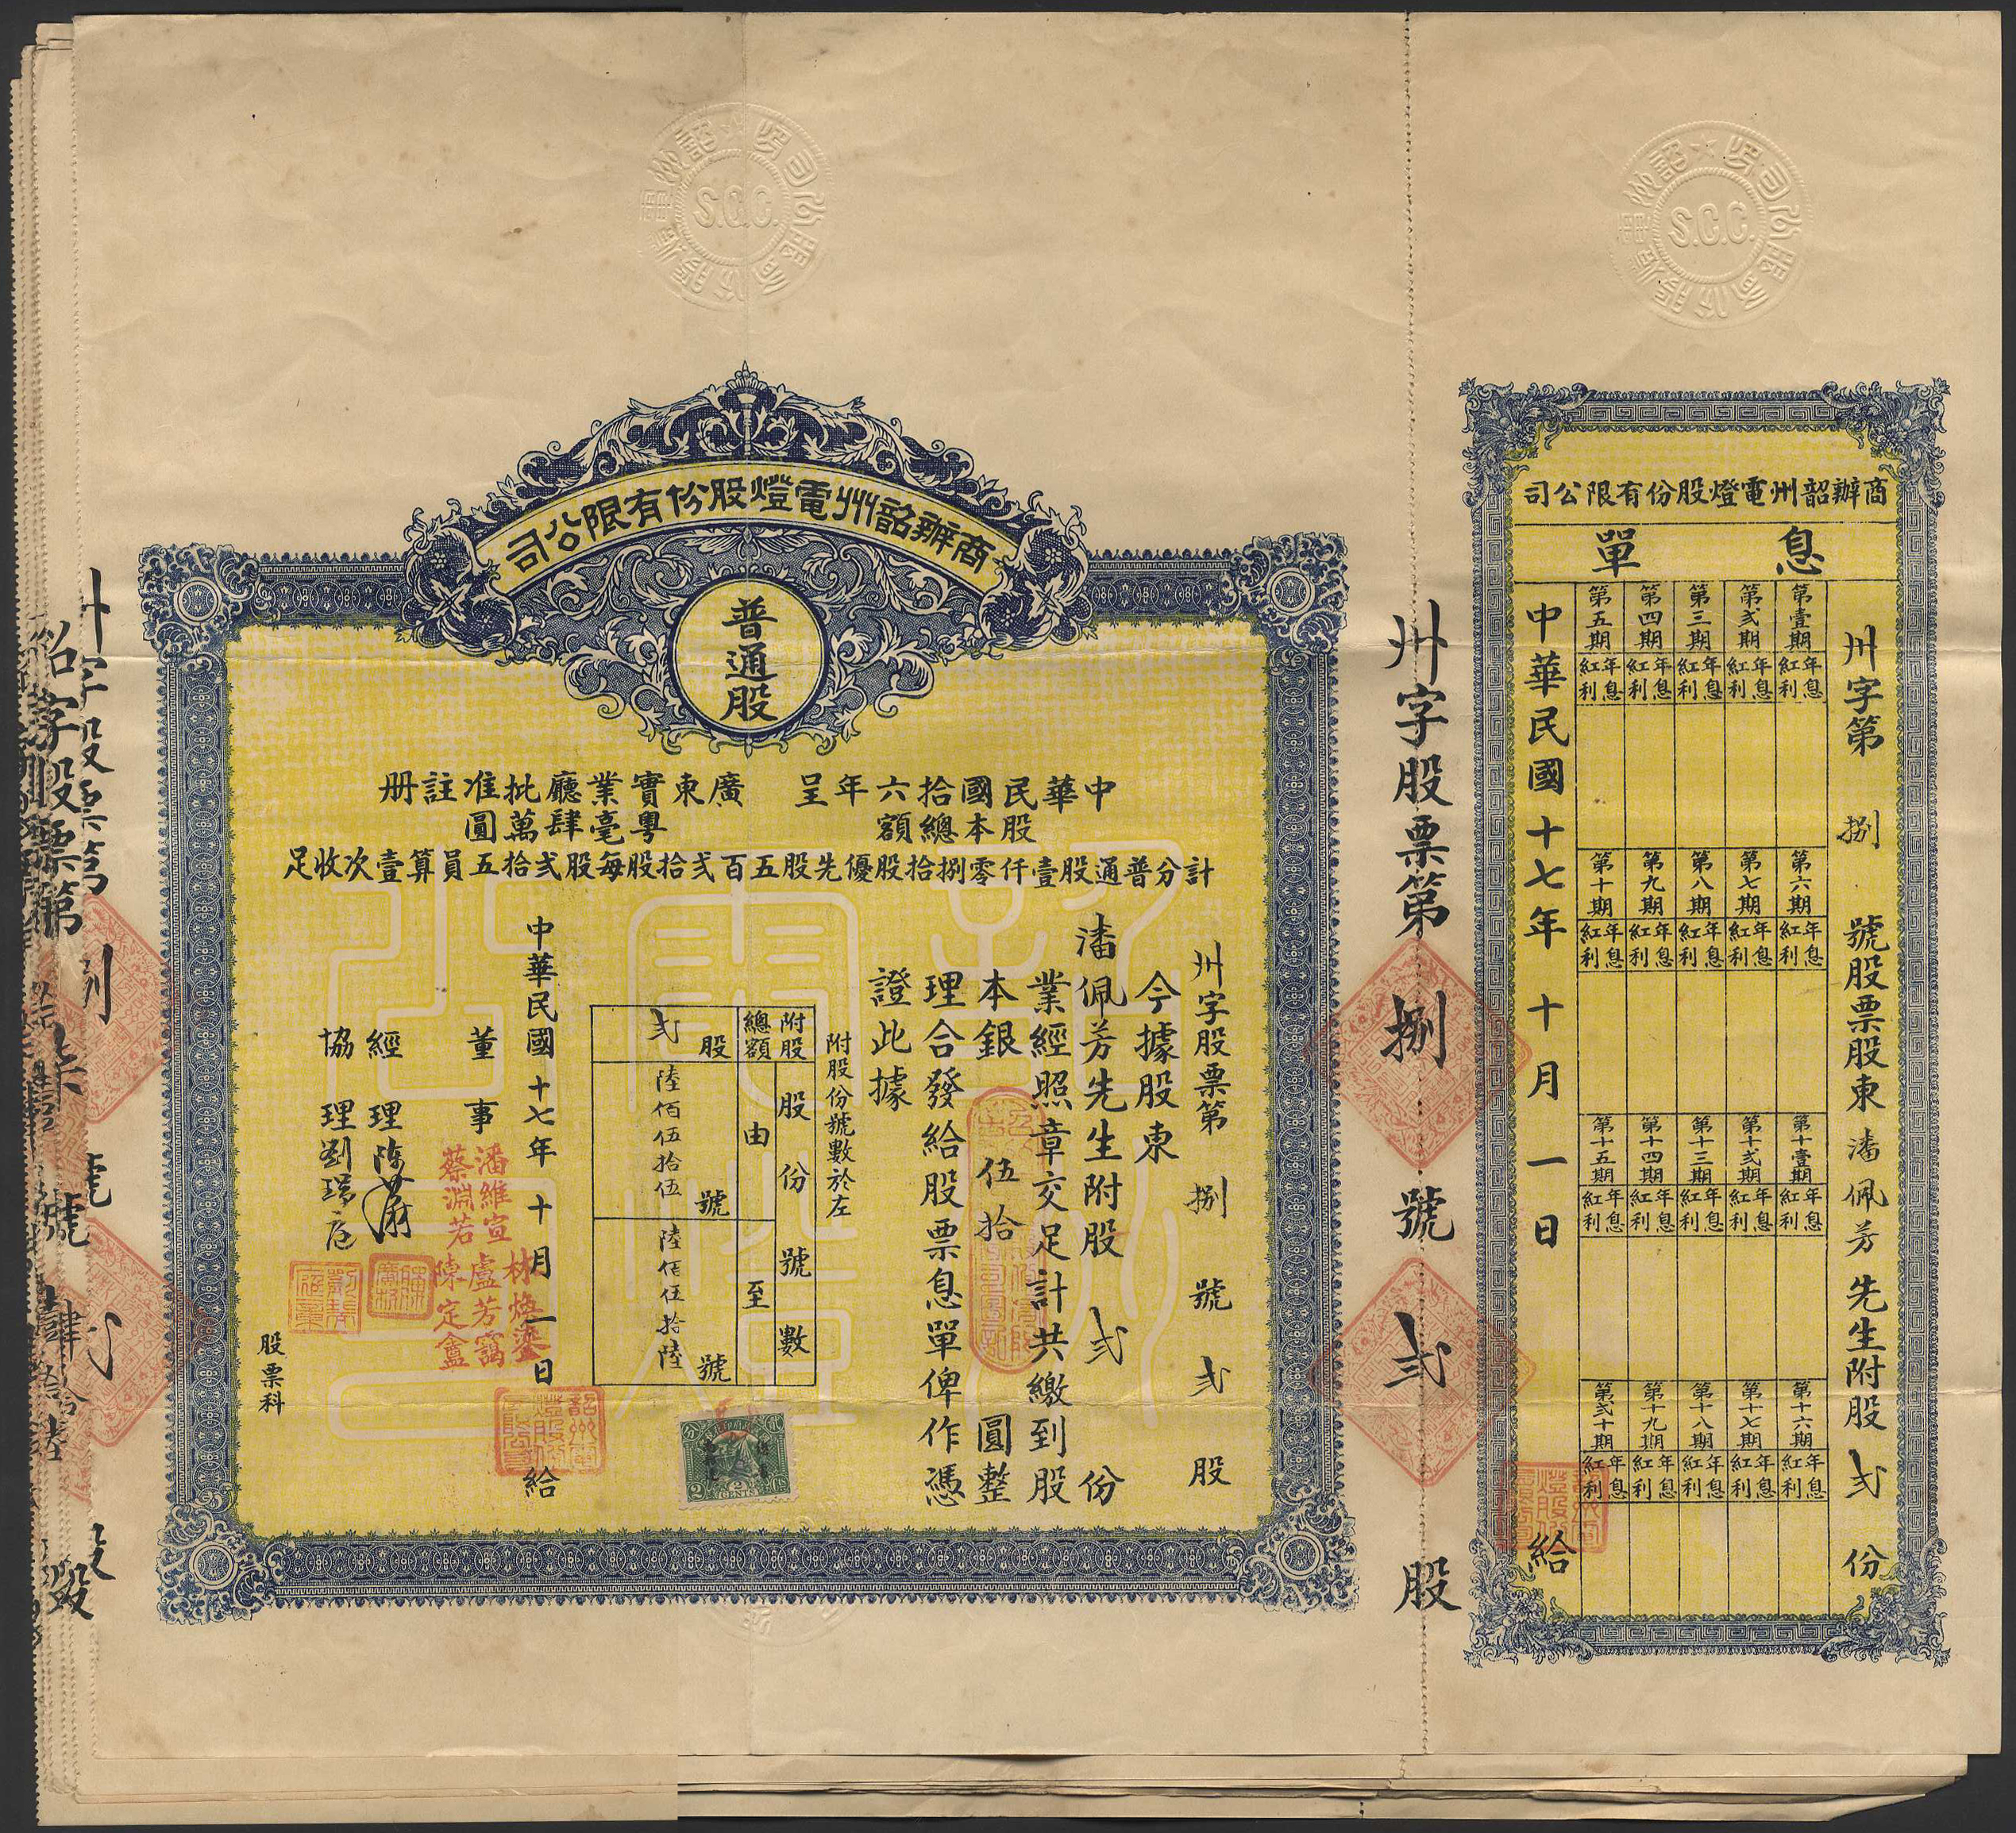 商辦韶州電燈股份有限公司
普通股
中華民國拾六年呈 廣東實業廳批准註册
股本總額 粵毫肆萬圓
計分普通股壹仟零捌拾股優先股五百弍拾股每股弍拾五員算壹次收足
州字股票第 捌 號 弍 股
今據股東
潘佩芳先生附股 弍 份
業經照章交足計共繳到股
本銀 伍拾 圓整
理合發給股票息單俾作憑
證此據
附股份號數於左
附股總額
股份號數
由
至
弍股
陸佰伍拾伍號
陸佰伍拾陸號
中華民國十七年十月一日給
董事
潘維宣
盧芳
蔡淵若
陳定盦
經理陳
協理劉
股票科
2 CENTS 2
州字股票第 捌 號 弍 股
商辦韶州電燈股份有限公司
息單
州字第 捌 號股票股東 潘佩芳 先生附股 弍 份
第壹期 年息 紅利
第弍期 年息 紅利
第三期 年息 紅利
第四期 年息 紅利
第五期 年息 紅利
第六期 年息 紅利
第七期 年息 紅利
第八期 年息 紅利
第九期 年息 紅利
第十期 年息 紅利
第十壹期 年息 紅利
第十弍期 年息 紅利
第十三期 年息 紅利
第十四期 年息 紅利
第十五期 年息 紅利
第十六期 年息 紅利
第十七期 年息 紅利
第十八期 年息 紅利
第十九期 年息 紅利
第弍十期 年息 紅利
中華民國十七年 十月 一日 給
S.C.C.
S.C.C.